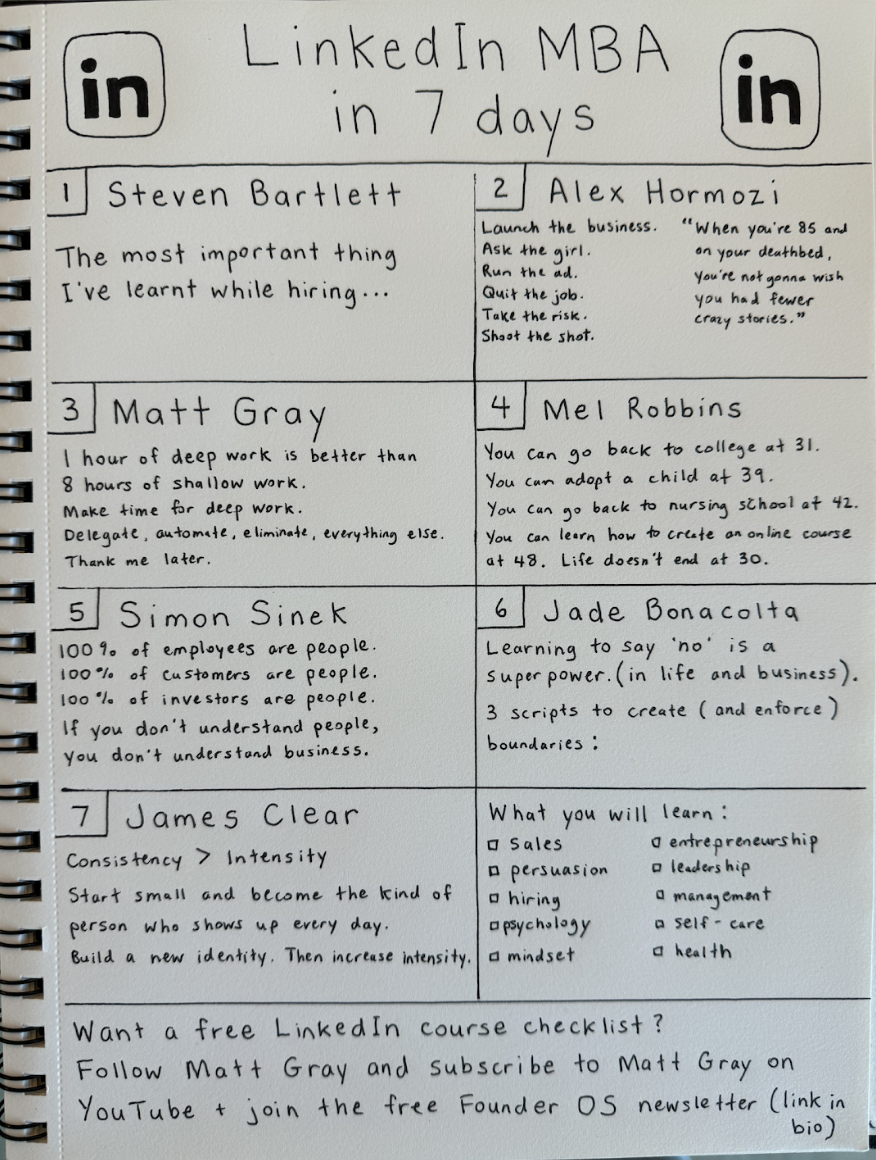 in
LinkedIn MBA
in 7 days
in
1 Steven Bartlett
The most important thing
I've learnt while hiring...
2 Alex Hormozi
Launch the business.
Ask the girl.
Run the ad.
Quit the job.
Take the risk.
Shoot the shot.
"When you're 85 and
on your deathbed,
you're not gonna wish
you had fewer
crazy stories."
3 Matt Gray
1 hour of deep work is better than
8 hours of shallow work.
Make time for deep work.
Delegate, automate, eliminate, everything else.
Thank me later.
4 Mel Robbins
You can go back to college at 31.
You can adopt a child at 39.
You can go back to nursing school at 42.
You can learn how to create an online course
at 48. Life doesn't end at 30.
5 Simon Sinek
100% of employees are people.
100% of customers are people.
100% of investors are people.
If you don't understand people,
you don't understand business.
6 Jade Bonacolta
Learning to say 'no' is a
superpower. (in life and business).
3 scripts to create (and enforce)
boundaries:
7 James Clear
Consistency > Intensity
Start small and become the kind of
person who shows up every day.
Build a new identity. Then increase intensity.
What you will learn:
sales
persuasion
hiring
psychology
mindset
entrepreneurship
leadership
management
self-care
health
Want a free LinkedIn course checklist?
Follow Matt Gray and subscribe to Matt Gray on
YouTube + join the free Founder OS newsletter (link in
bio)